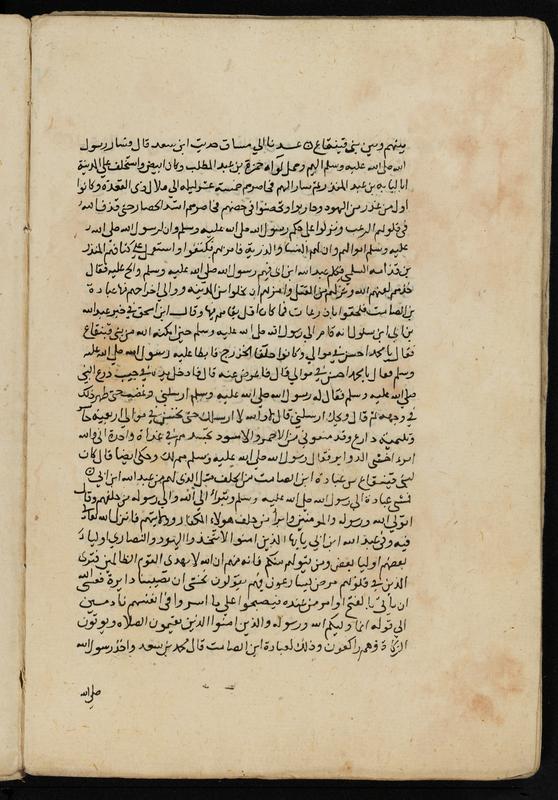 بينهم وبين بنى قينقاع عدنا الي حديث ابن سعد قال وسار رسول
الله صلى الله عليه وسلم اليهم وحمل لواه حمزة بن عبد المطلب وكان ابيض واستخلف على المدينة
ابا لبابه بن عبد المنذر ثم سار اليهم فحاصرهم خمسة عشر ليله الي هلال ذى القعدة وكانوا
اول من غدر من اليهود وحاربوا وتحصنوا فى حصنهم فحاصرهم اشد الحصار حتى قذف الله
فى قلوبهم الرعب ونزلوا على حكم رسول الله صلى الله عليه وسلم وان لرسول الله صلى الله
عليه وسلم اموالهم وان لهم النسا والذرية فامر بهم فكتفوا واستعمل على كتافهم المنذر
بن قدامه السلمي فكلم عبد الله ابن ابى فيهم رسول الله صلى الله عليه وسلم والح عليه فقال
خلوهم لعنهم الله ولعنه معهم وتركهم من القتل وامر بهم ان يجلوا من المدينه وولى اخراجهم منها عبادة
بن الصامت فلحقوا باذرعات فما كان اقل بقاهم بها وقال ابن اسحق فى خبر عبد الله
بن ابى ابن سلول انه قام الى رسول الله صلى الله عليه وسلم حين امكنه الله من بنى قينقاع
فقال يا محمد احسن فى موالي وكانوا حلفا الخزرج فابطا عليه رسول الله صلى الله عليه
وسلم فقال يا محمد احسن فى موالى قال فاعرض عنه قال فادخل يده فى جيب درع النبى
صلى الله عليه وسلم فقال له رسول الله صلى الله عليه وسلم ارسلنى وغضب حتى ظهر ذلك
فى وجهه ثم قال ويحك ارسلني قال لا والله لا ارسلك حتى تحسن فى موالى اربعمايه حاسر
وثلثميه دارع وقد منعونى من الاحمر والاسود تحصدهم فى غداة واحدة انى والله
امرؤ اخشى الدواير فقال رسول الله صلى الله عليه وسلم هم لك وحكى ايضا قال كان
لبنى قينقاع من عبادة ابن الصامت من الحلف مثل الذى لهم من عبد الله ابن ابى
فمشى عبادة الى رسول الله صلى الله عليه وسلم وتبرا الى الله والى رسوله من حلفهم وقال
اتولى الله ورسوله والمومنين وابرا من حلف هولاء الكفار وولايتهم فانزل الله تعالى
فيه وفى عبد الله ابن ابى يا ايها الذين امنوا لا تتخذوا اليهود والنصارى اوليا
بعضهم اوليا بعض ومن يتولهم منكم فانه منهم ان الله لا يهدى القوم الظالمين فترى
الذين فى قلوبهم مرض يسارعون فيهم يقولون نخشى ان تصيبنا دايرة فعسى الله
ان ياتى بالفتح او امر من عنده فيصبحوا على ما اسروا فى انفسهم نادمين
الى قوله انما وليكم الله ورسوله والذين امنوا الذين يقيمون الصلاه ويوتون
الزكاة وهم راكعون وذلك لعبادة ابن الصامت قال محمد بن سعد واخذ رسول الله
صلى الله